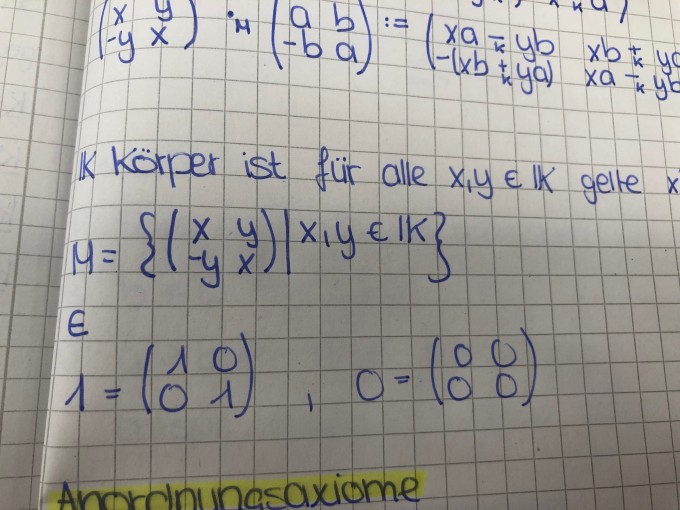 (x y) ·M (a b) := (xa -K yb xb +K ya
(-y x) (-b a) (-(xb +K ya) xa -K yb
K Körper ist für alle x,y ∈ K gelte x
M = {(x y) | x,y ∈ K}
(-y x)
∈
1 = (1 0) , 0 = (0 0)
(0 1) (0 0)
Anordnungsaxiome